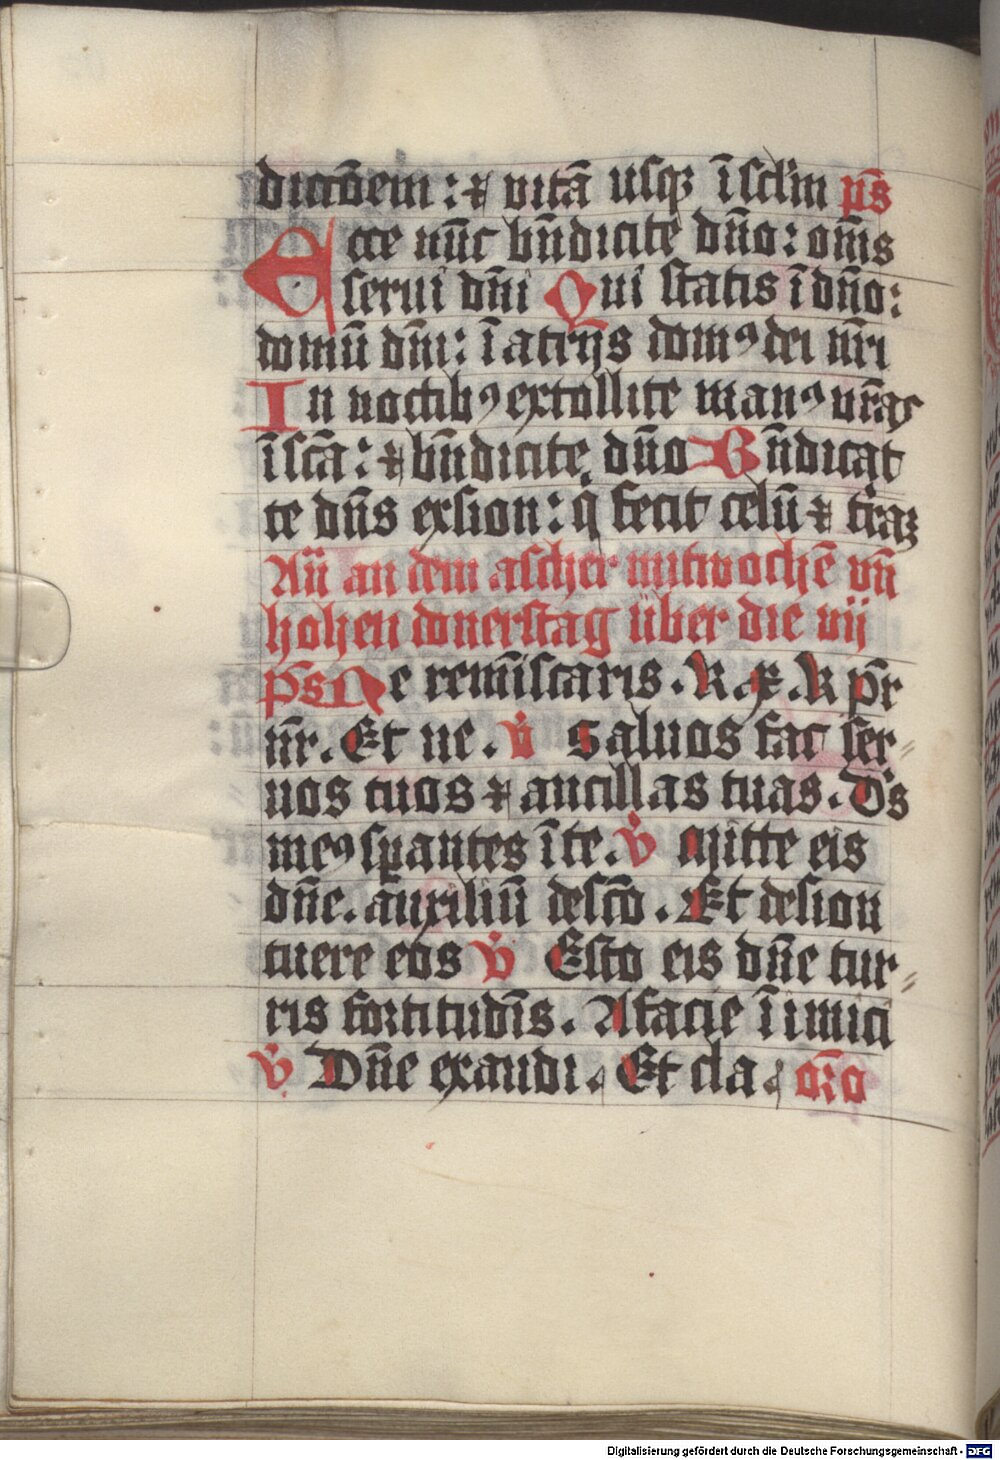 dictōem : ⁊ vitā usqꝫ ī sclm̄ p̄s
Ecce nūc bn̄dicite dn̄o : om̄s
serui dn̄i Qui statis ī dn̄o :
domū dn̄i : ī atrijs domꝰ dei nr̄i
In noctibꝰ extollite manꝰ vr̄as
ī scā : ⁊ bn̄dicite dn̄o Bn̄dicat
te dn̄s exsion : q̄ fecit celū ⁊ t̄raꝫ
Aū an dem ascher mitwochē vn̄
hohen donerstag über die vij
p̄s Ne rem̄iscaris . k . x̄ . k pr̄
nr̄ . Et ne . v̄ Saluos fac ser⸗
uos tuos ⁊ ancillas tuas . Ds̄
meꝰ sꝑantes ī te . v̄ Mitte eis
dn̄e . auxiliū de sc̄o . Et desion
tuere eos v̄ Esto eis dn̄e tur⸗
ris fortitudīs . A facie īimici
v̄ Dn̄e exaudi . Et cla . or̄o
Digitalisierung gefördert durch die Deutsche Forschungsgemeinschaft - DFG